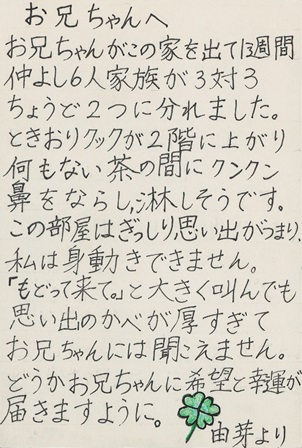 お兄ちゃんへ
お兄ちゃんがこの家を出て1週間
仲よし6人家族が3対3
ちょうど2つに分れました。
ときおりクックが2階に上がり
何もない茶の間にクンクン
鼻をならし、淋しそうです。
この部屋はぎっしり思い出がつまり、
私は身動きできません。
「もどって来て。」と大きく叫んでも
思い出のかべが厚すぎて
お兄ちゃんには聞こえません。
どうかお兄ちゃんに希望と幸運が
届きますように。
由芽より